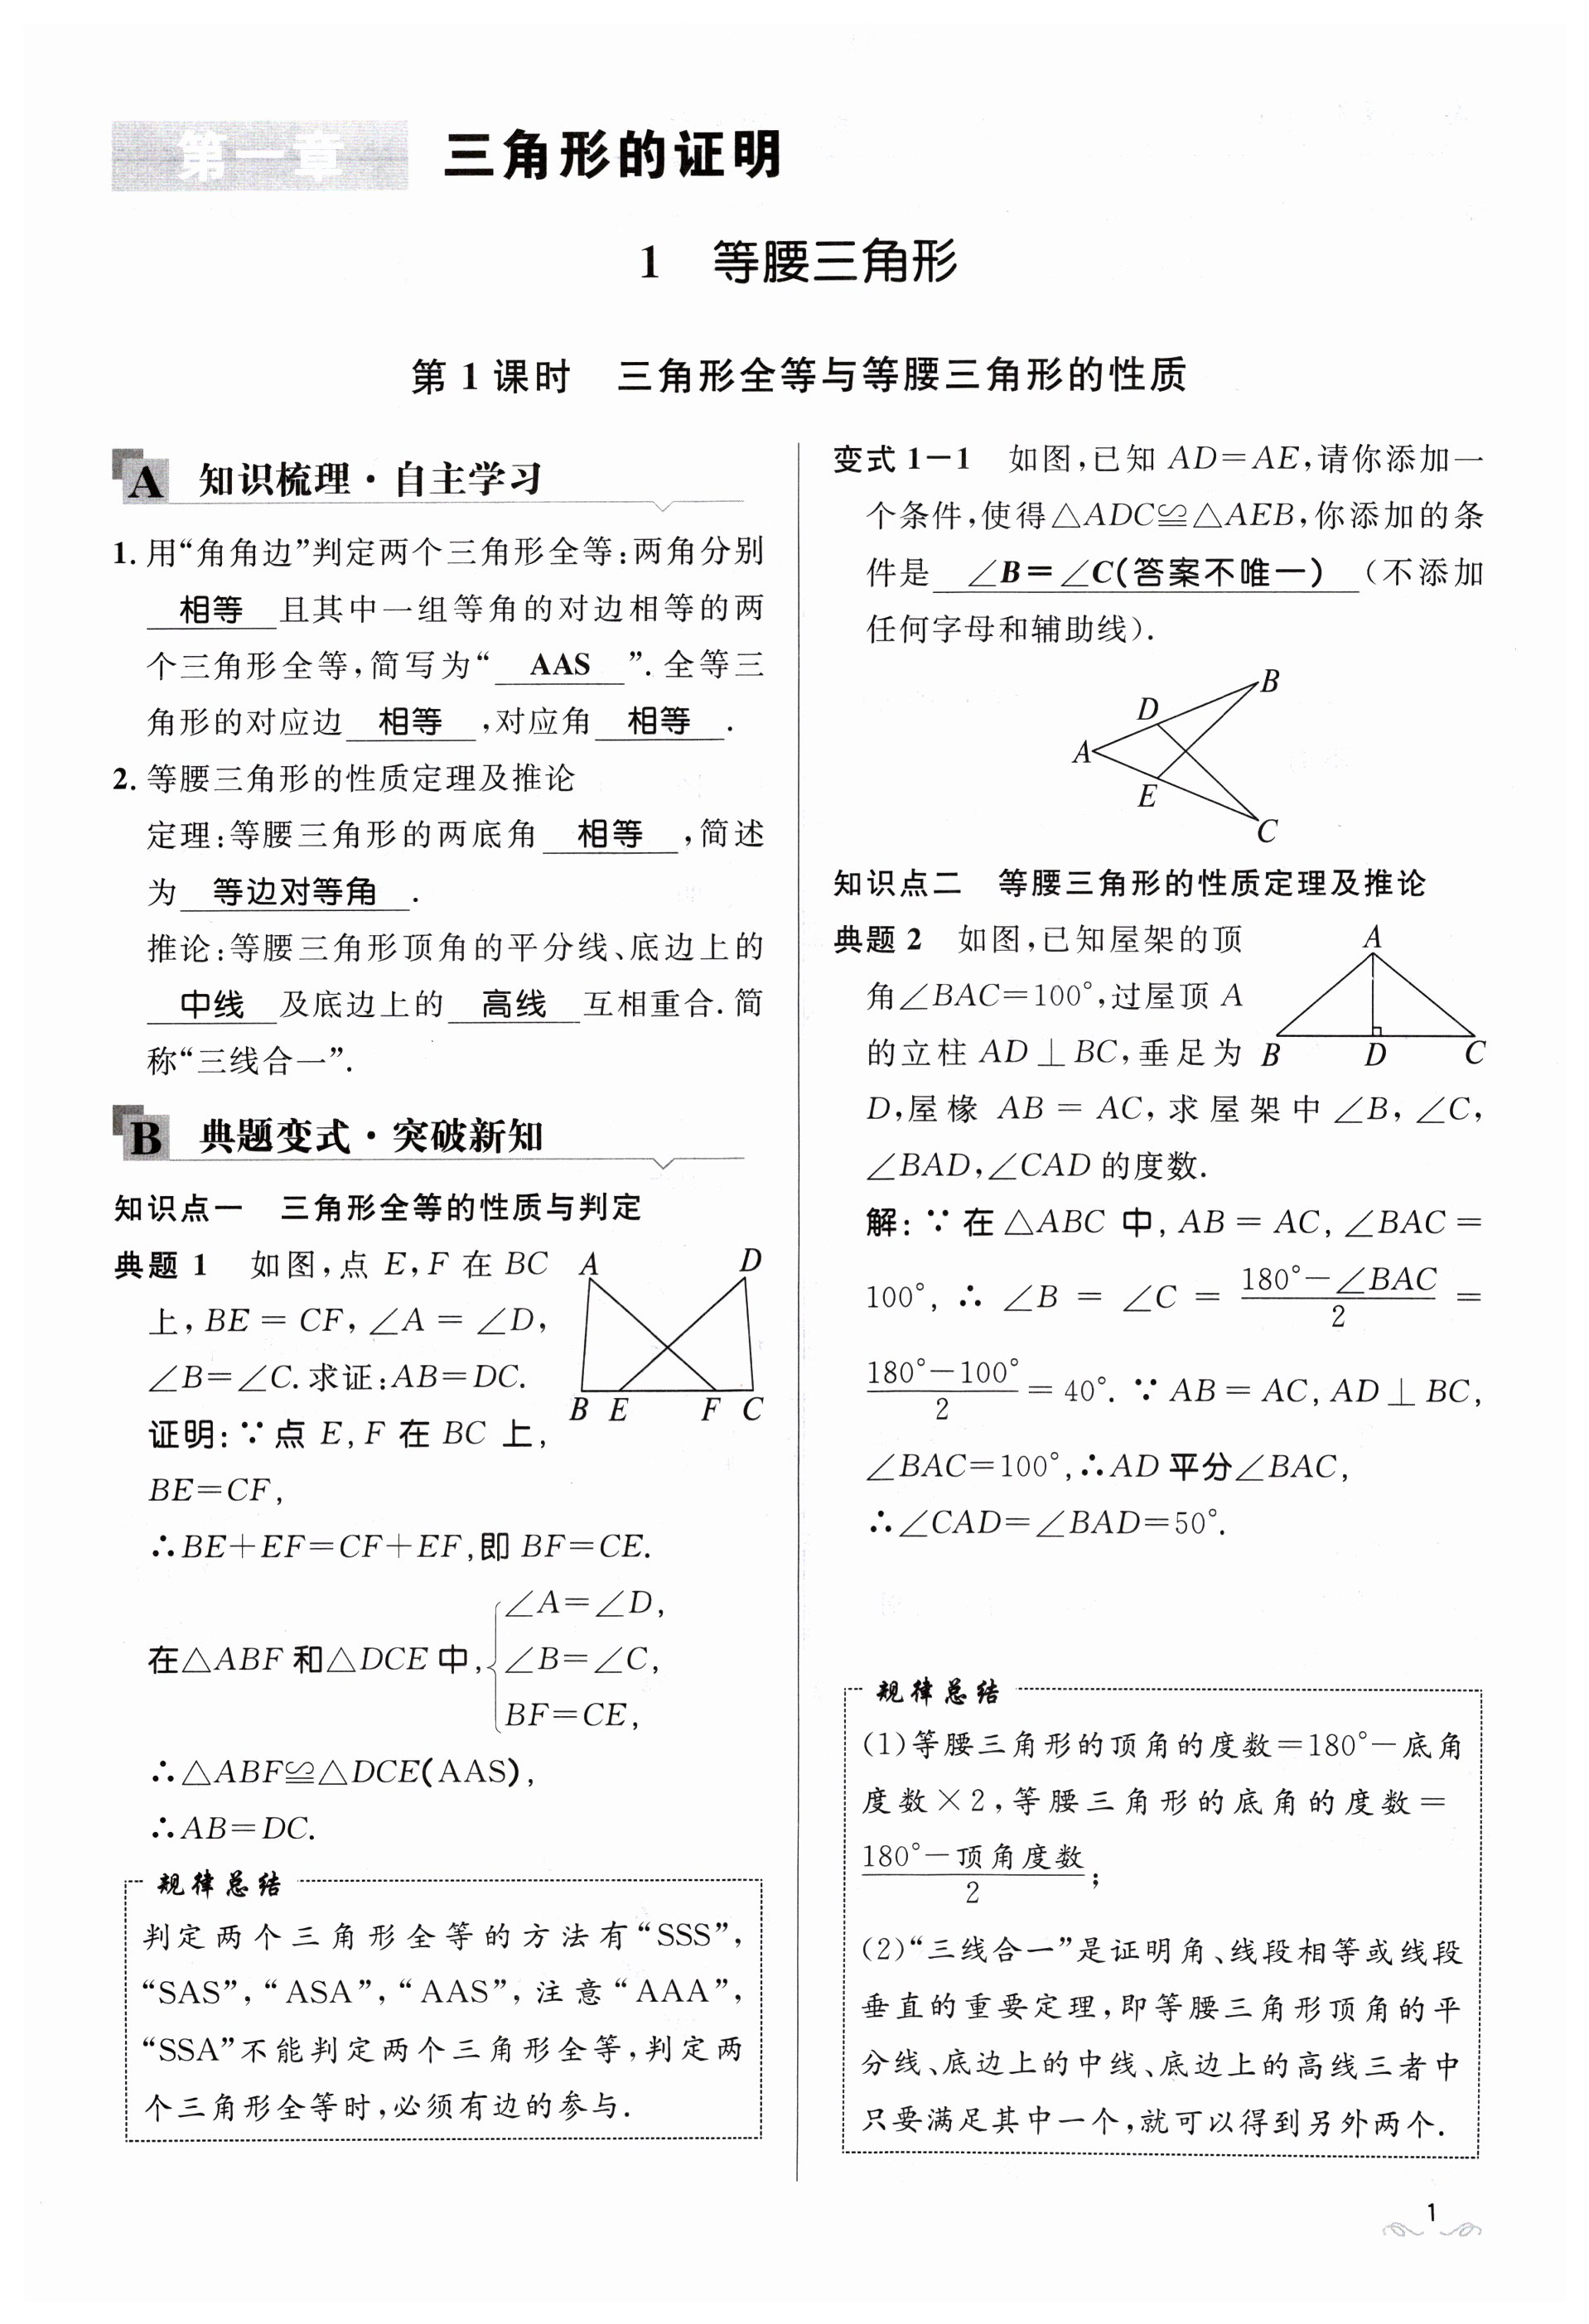 第一章 三角形的证明
1 等腰三角形
第 1 课时 三角形全等与等腰三角形的性质
A 知识梳理·自主学习
1. 用“角角边”判定两个三角形全等:两角分别
相等 且其中一组等角的对边相等的两
个三角形全等,简写为“ AAS ”. 全等三
角形的对应边 相等 ,对应角 相等 .
2. 等腰三角形的性质定理及推论
定理:等腰三角形的两底角 相等 ,简述
为 等边对等角 .
推论:等腰三角形顶角的平分线、底边上的
中线 及底边上的 高线 互相重合. 简
称“三线合一”.
B 典题变式·突破新知
知识点一 三角形全等的性质与判定
典题 1 如图,点 E,F 在 BC
上,BE = CF,∠A = ∠D,
∠B=∠C. 求证:AB=DC.
A D
B E F C
证明:∵点 E,F 在 BC 上,
BE=CF,
∴BE+EF=CF+EF,即 BF=CE.
∠A=∠D,
在△ABF 和△DCE 中,{∠B=∠C,
BF=CE,
∴△ABF≌△DCE(AAS),
∴AB=DC.
规律总结
判定两个三角形全等的方法有“SSS”,
“SAS”,“ASA”,“AAS”,注意“AAA”,
“SSA”不能判定两个三角形全等,判定两
个三角形全等时,必须有边的参与.
变式 1—1 如图,已知 AD=AE,请你添加一
个条件,使得△ADC≌△AEB,你添加的条
件是 ∠B=∠C(答案不唯一) (不添加
任何字母和辅助线).
B
D
A
E
C
知识点二 等腰三角形的性质定理及推论
典题 2 如图,已知屋架的顶
角∠BAC=100°,过屋顶 A
的立柱 AD⊥BC,垂足为
A
B D C
D,屋椽 AB = AC,求屋架中∠B,∠C,
∠BAD,∠CAD 的度数.
解:∵在△ABC 中,AB = AC,∠BAC =
100°,∴∠B = ∠C = (180°-∠BAC)/2 =
(180°-100°)/2 = 40°. ∵AB = AC,AD⊥BC,
∠BAC=100°,∴AD 平分∠BAC,
∴∠CAD=∠BAD=50°.
规律总结
(1)等腰三角形的顶角的度数=180°-底角
度数×2,等腰三角形的底角的度数=
(180°-顶角度数)/2;
(2)“三线合一”是证明角、线段相等或线段
垂直的重要定理,即等腰三角形顶角的平
分线、底边上的中线、底边上的高线三者中
只要满足其中一个,就可以得到另外两个.
1